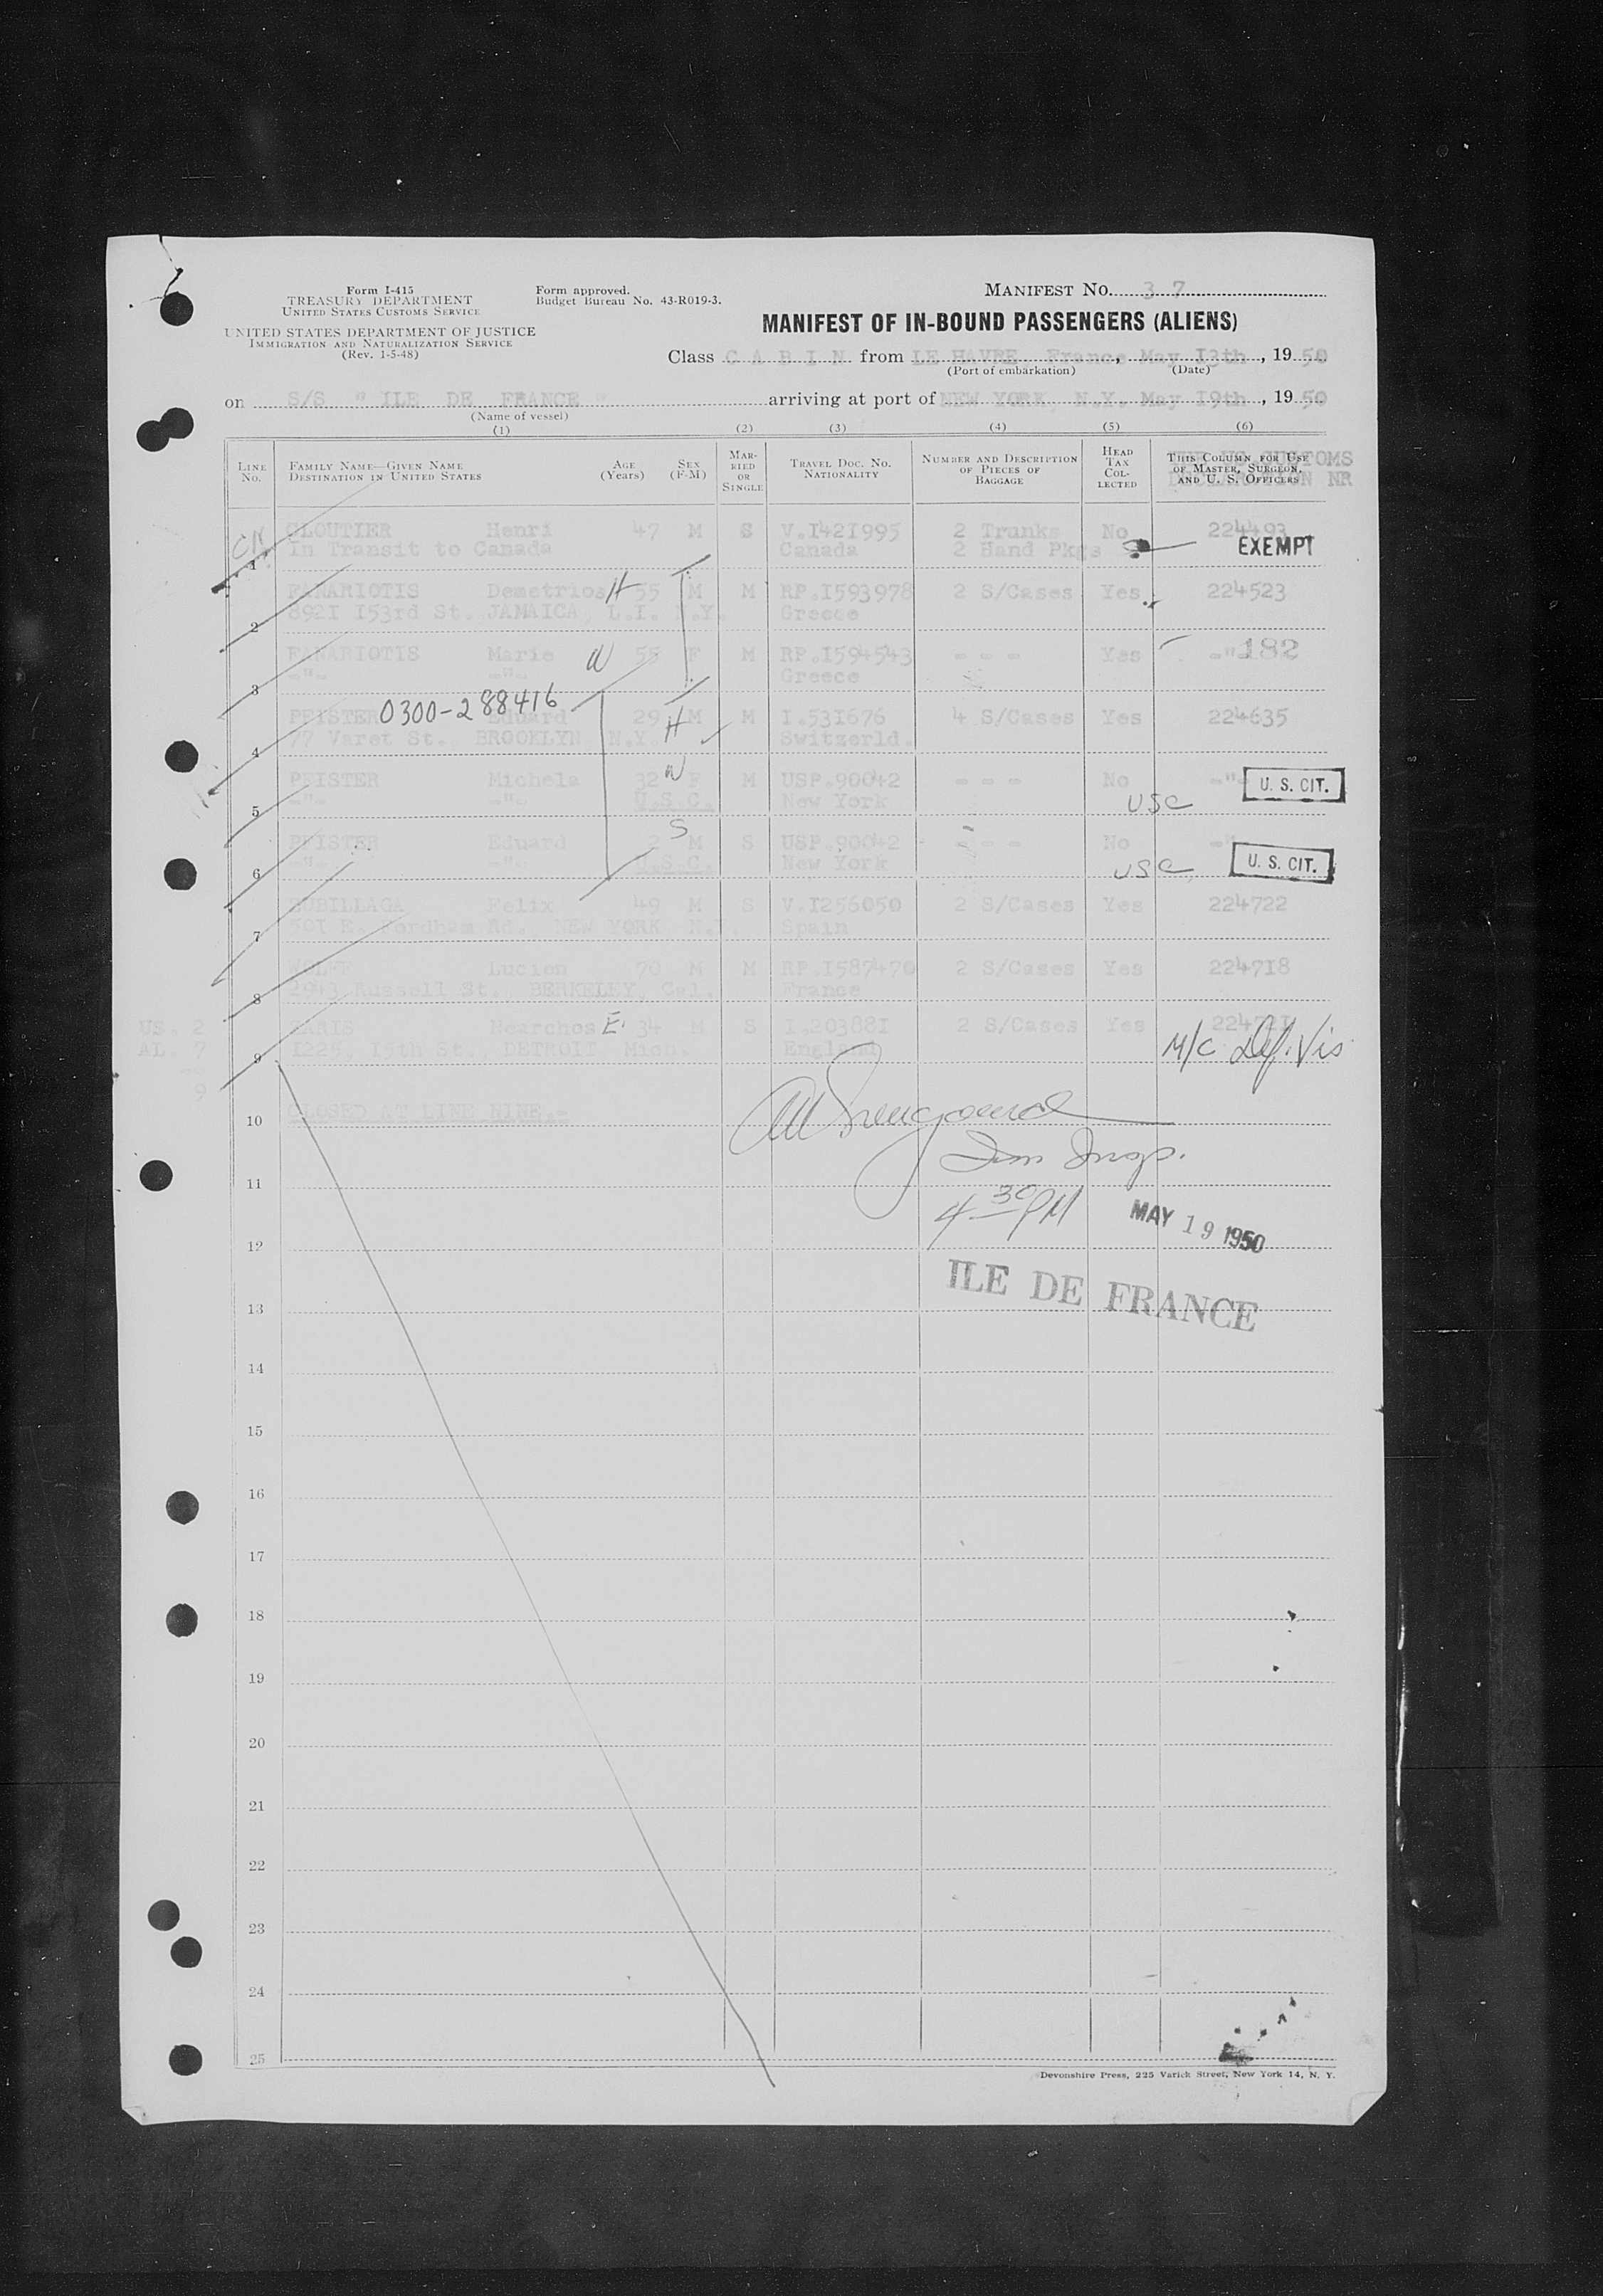 Form I-415
TREASURY DEPARTMENT
UNITED STATES CUSTOMS SERVICE
UNITED STATES DEPARTMENT OF JUSTICE
IMMIGRATION AND NATURALIZATION SERVICE
(Rev. 1-5-48)
Form approved.
Budget Bureau No. 43-R019-3.
MANIFEST NO. 3 7
MANIFEST OF IN-BOUND PASSENGERS (ALIENS)
Class C A B I N from LE HAVRE, France, May I3th, 19 50
(Port of embarkation) (Date)
on S/S " ILE DE FRANCE " arriving at port of NEW YORK, N.Y. May I9th, 19 50
(Name of vessel)
(1) (2) (3) (4) (5) (6)
LINE No. FAMILY NAME—GIVEN NAME DESTINATION IN UNITED STATES AGE (Years) SEX (F-M) MARRIED OR SINGLE TRAVEL DOC. NO. NATIONALITY NUMBER AND DESCRIPTION OF PIECES OF BAGGAGE HEAD TAX COLLECTED THIS COLUMN FOR USE OF MASTER, SURGEON, AND U. S. OFFICERS
CUSTOMS
NR
1 CLOUTIER Henri 47 M S V.I42I995 2 Trunks No 224493
In Transit to Canada Canada 2 Hand Pkgs EXEMPT
2 FANARIOTIS Demetrios H 55 M M RP.I593978 2 S/Cases Yes 224523
892I I53rd St. JAMAICA, L.I. N.Y. Greece
3 FANARIOTIS Marie W 55 F M RP.I594543 - - - Yes -"- 182
-"- -"- Greece
0300-288416
4 PFISTER Eduard 29 M H M I.53I676 4 S/Cases Yes 224635
77 Varet St. BROOKLYN N.Y. Switzerld.
5 PFISTER Michela 32 F W M USP.90042 - - - No -"- U. S. CIT.
-"- -"- U.S.C. New York USC
6 PFISTER Eduard 2 M S S USP.90042 - - - No -"-
-"- -"- U.S.C. New York USC U. S. CIT.
7 SUBILLAGA Felix 49 M S V.I256050 2 S/Cases Yes 224722
50I E. Fordham Rd. NEW YORK N.Y. Spain
8 WOLFF Lucien 70 M M RP.I587470 2 S/Cases Yes 2247I8
2943 Russell St. BERKELEY, Cal. France
US. 2
AL. 7
9
9 Nearchos E. 34 M S I.20388I 2 S/Cases Yes 22472I
I225, I5th St., DETROIT, Mich. England M/C Def. Vis
10 CLOSED AT LINE NINE.-
Imm Insp.
11
4 30 PM MAY 19 1950
12
ILE DE FRANCE
13
14
15
16
17
18
19
20
21
22
23
24
25
Devonshire Press, 225 Varick Street, New York 14, N. Y.